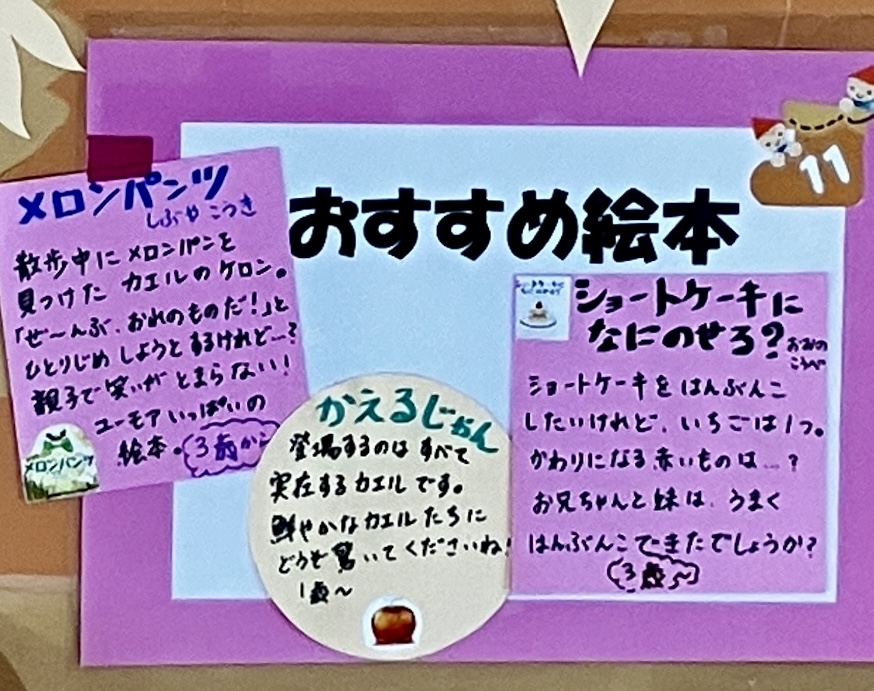 おすすめ絵本
11
メロンパンツ
しぶや こうき
散歩中に メロンパンを
見つけた カエルのケロン。
「ぜ〜んぶ、おれのものだ!」と
ひとりじめ しようと するけれど…?
親子で 笑いが とまらない!
ユーモア いっぱいの
絵本。
3歳から
メロンパンツ
かえるじゃん
登場するのは すべて
実在するカエル です。
鮮やかなカエル たちに
どうぞ 驚いて くださいね!
1歳〜
ショートケーキに
なにのせる?
おおの
こうへい
ショートケーキを はんぶんこ
したいけれど、いちごは1つ。
かわりになる 赤いものは…?
お兄ちゃんと 妹は、うまく
はんぶんこできたでしょうか?
3歳〜